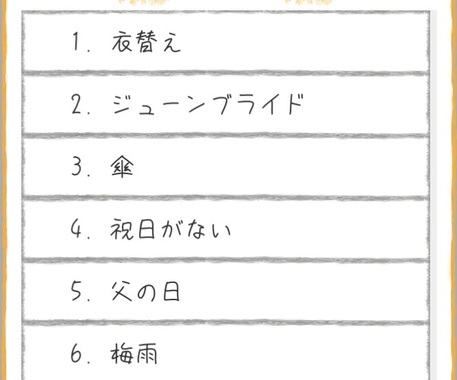 1. 衣替え
2. ジューンブライド
3. 傘
4. 祝日がない
5. 父の日
6. 梅雨